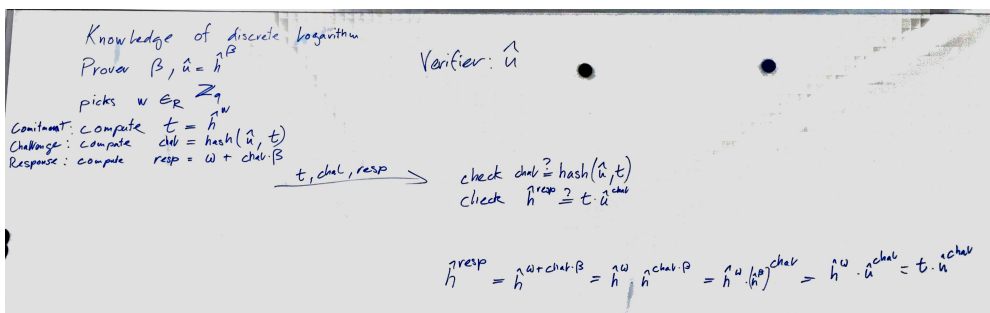 Knowledge of discrete Logarithm
Prover β, û = ĥ^β
Verifier: û
picks w ∈_R Z_q
Comitment: compute t = ĥ^w
Challenge: compute chal = hash(û, t)
Response: compute resp = ω + chal·β
t, chal, resp
check chal ≟ hash(û, t)
check ĥ^resp ≟ t · û^chal
ĥ^resp = ĥ^(ω+chal·β) = ĥ^ω · ĥ^(chal·β) = ĥ^ω · (ĥ^β)^chal = ĥ^ω · û^chal = t · û^chal